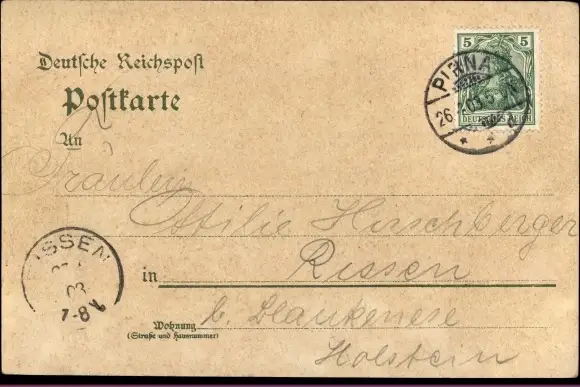 Deutsche Reichspost
Postkarte
An
Fräulein
Ottilie Hirschberger
in Rissen
b. Blankenese
Wohnung
(Straße und Hausnummer)
Holstein
5 5
DEUTSCHES REICH
PIRNA
26.
03.
RISSEN
03
7-8 V